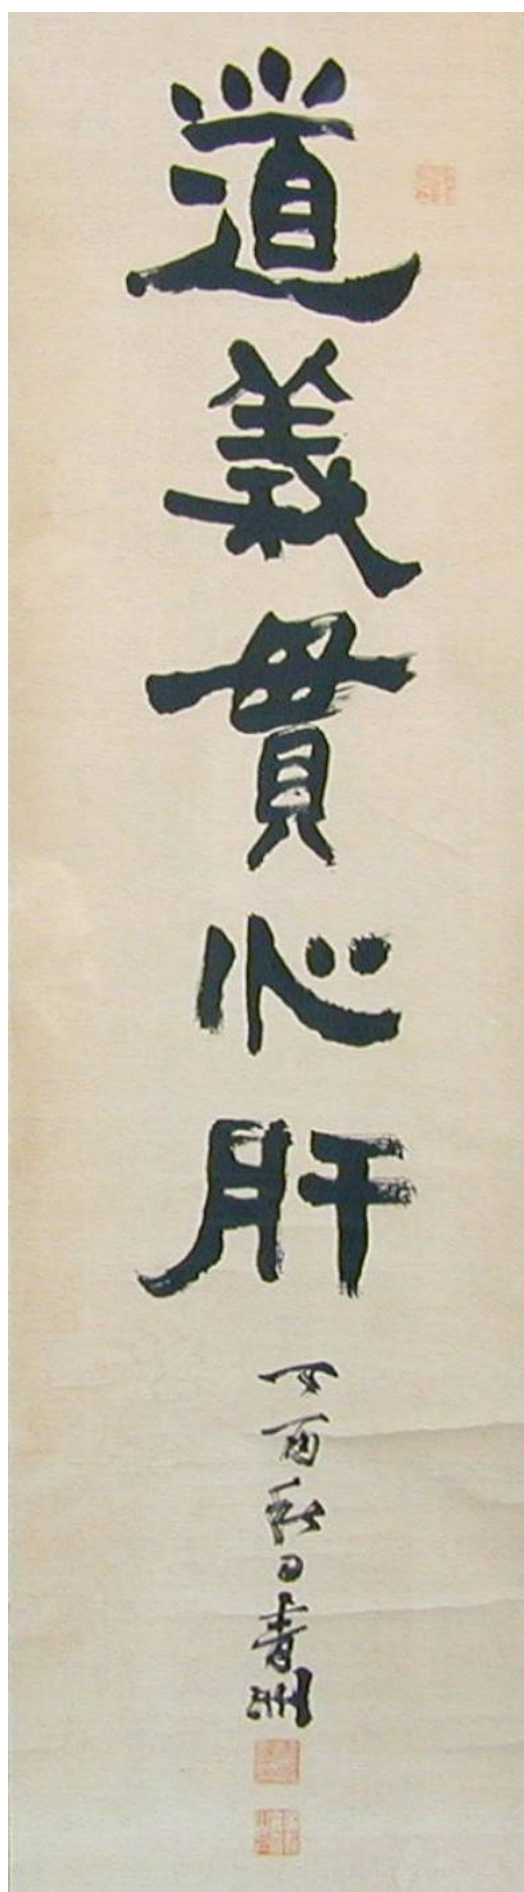 道義貫心肝
丁酉秋日青洲